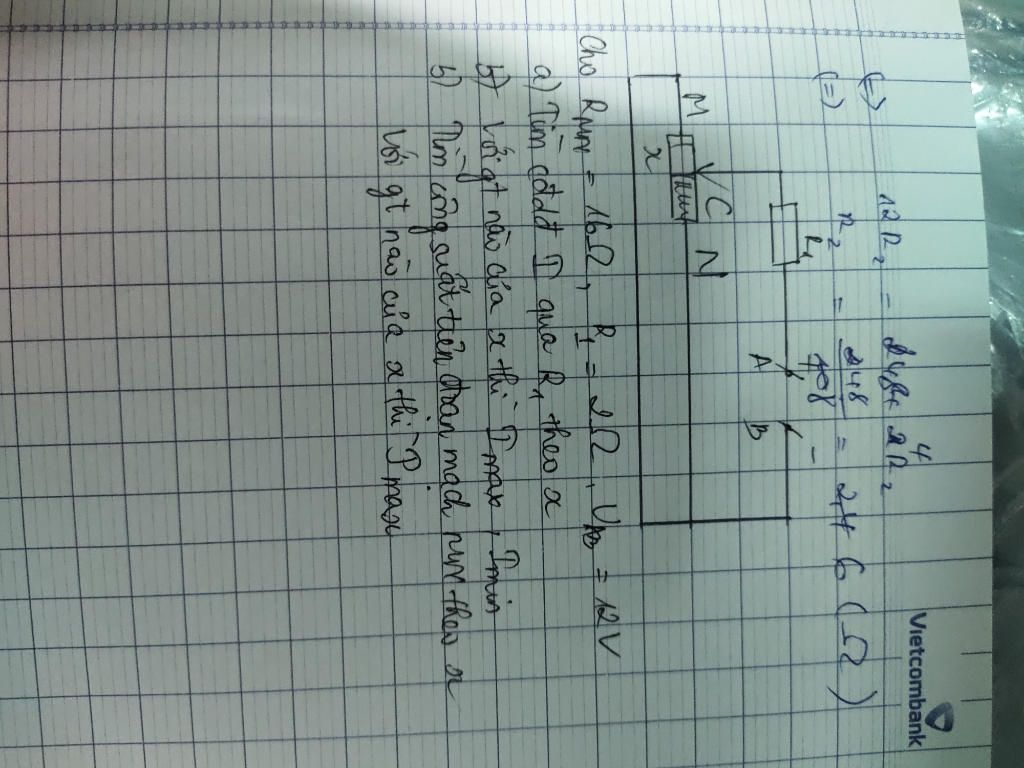 Vietcombank
12R₂ = 248+ 2R₂ 4
(=)
(=) R₂ = 248 = 6 (Ω)
R₁
A B
M C N
x
Cho R_MN = 16Ω, R₁ = 2Ω, U_AB = 12V
a) Tìm cđdđ I qua R₁ theo x
b) Với gt nào của x thì I max, I min
b) Tìm công suất tiêu đoạn mạch MN theo x
Với gt nào của x thì P max